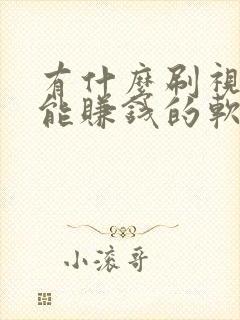 有什麼刷視
能賺錢的軟
小滚哥